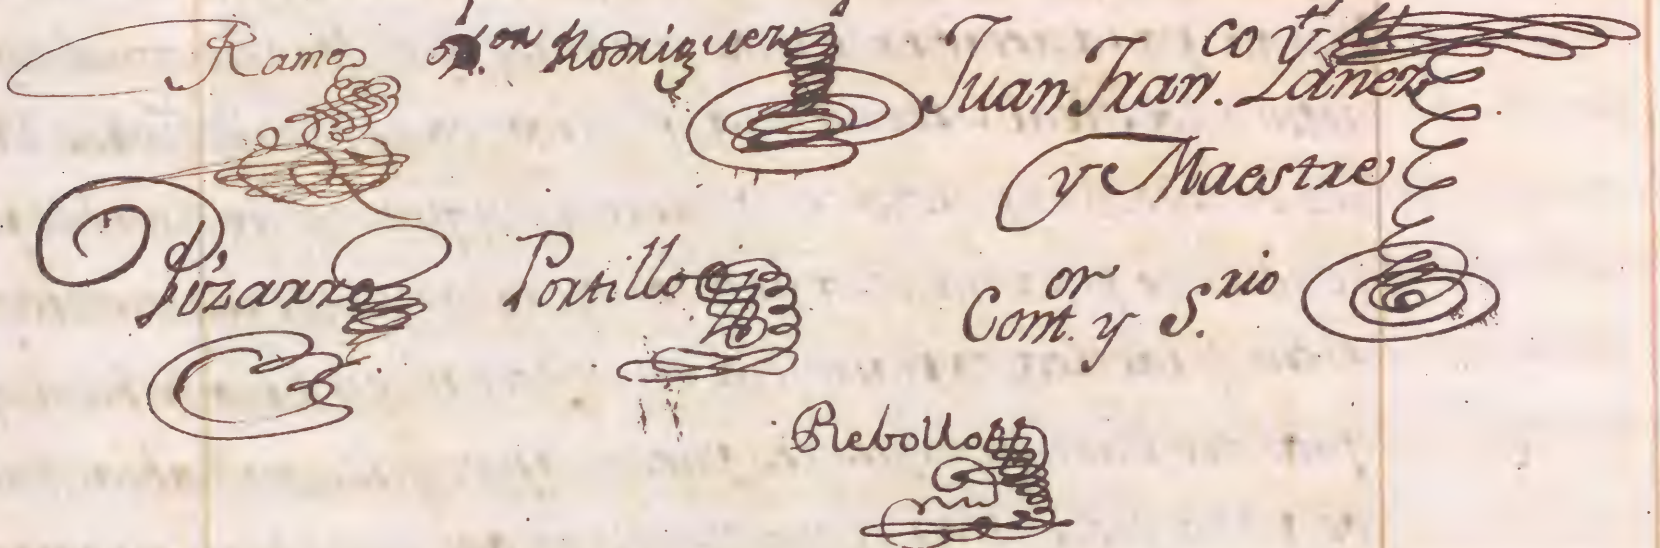 Ramos
Rodriguez
Juan Fran.co Yanez
y Maestre
Pizarro
Portillo
Cont.or y S.rio
Rebollo